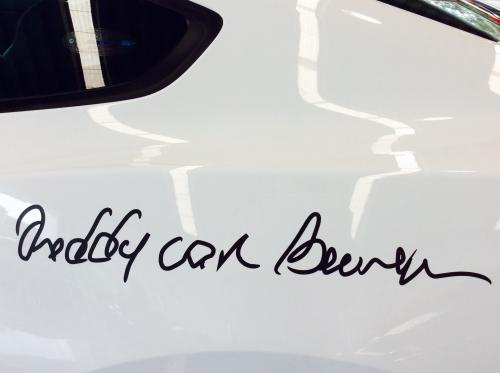 Freddy van Beuren